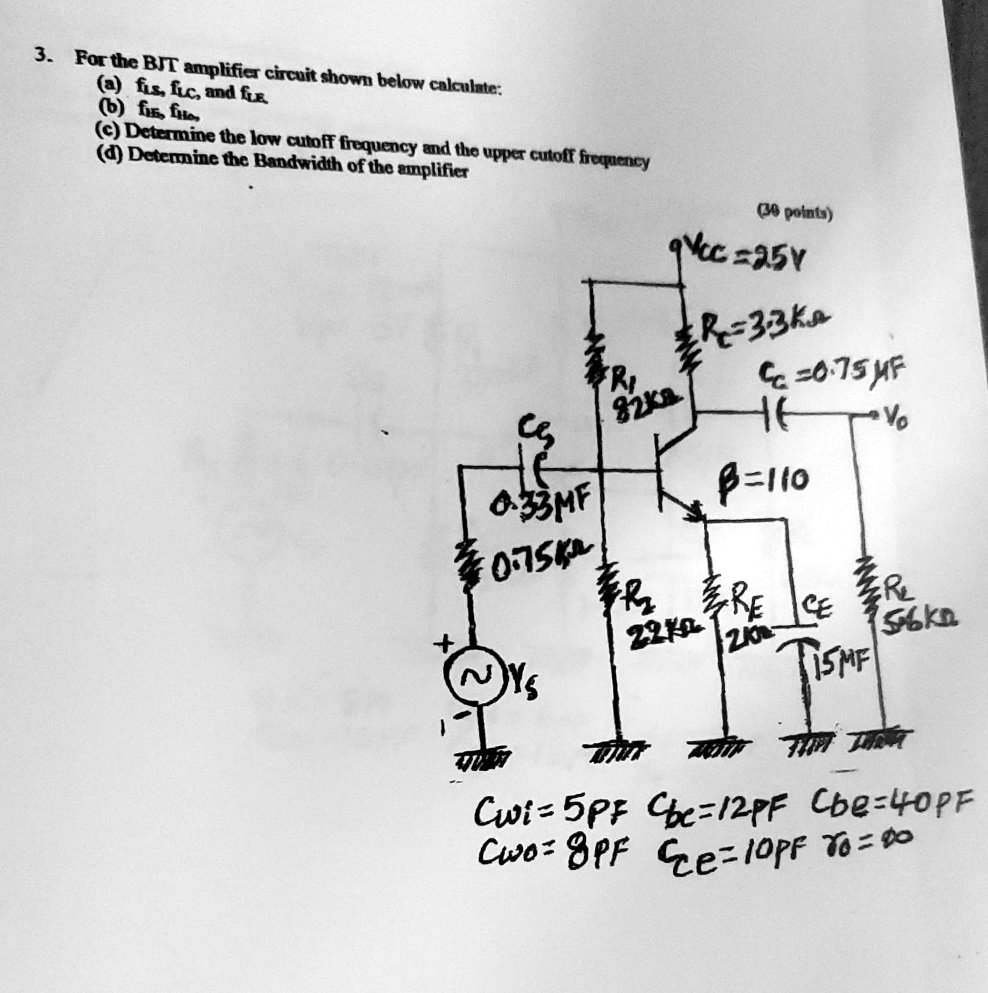 3. For the BJT amplifier circuit shown below calculate:
(a) fLS, fLC, and fLE
(b) fHi, fHo,
(c) Determine the low cutoff frequency and the upper cutoff frequency
(d) Determine the Bandwidth of the amplifier
(30 points)
VCC = 25V
RC = 3.3KΩ
CC = 0.75 μF
R1
82KΩ
Vo
CS
0.33MF
β = 110
0.75KΩ
R2
22KΩ
RE
2KΩ
CE
15MF
RL
5.6KΩ
+
~
VS
-
Cwi = 5PF Cbc = 12PF Cbe = 40PF
Cwo = 8PF Cce = 10PF ro = ∞